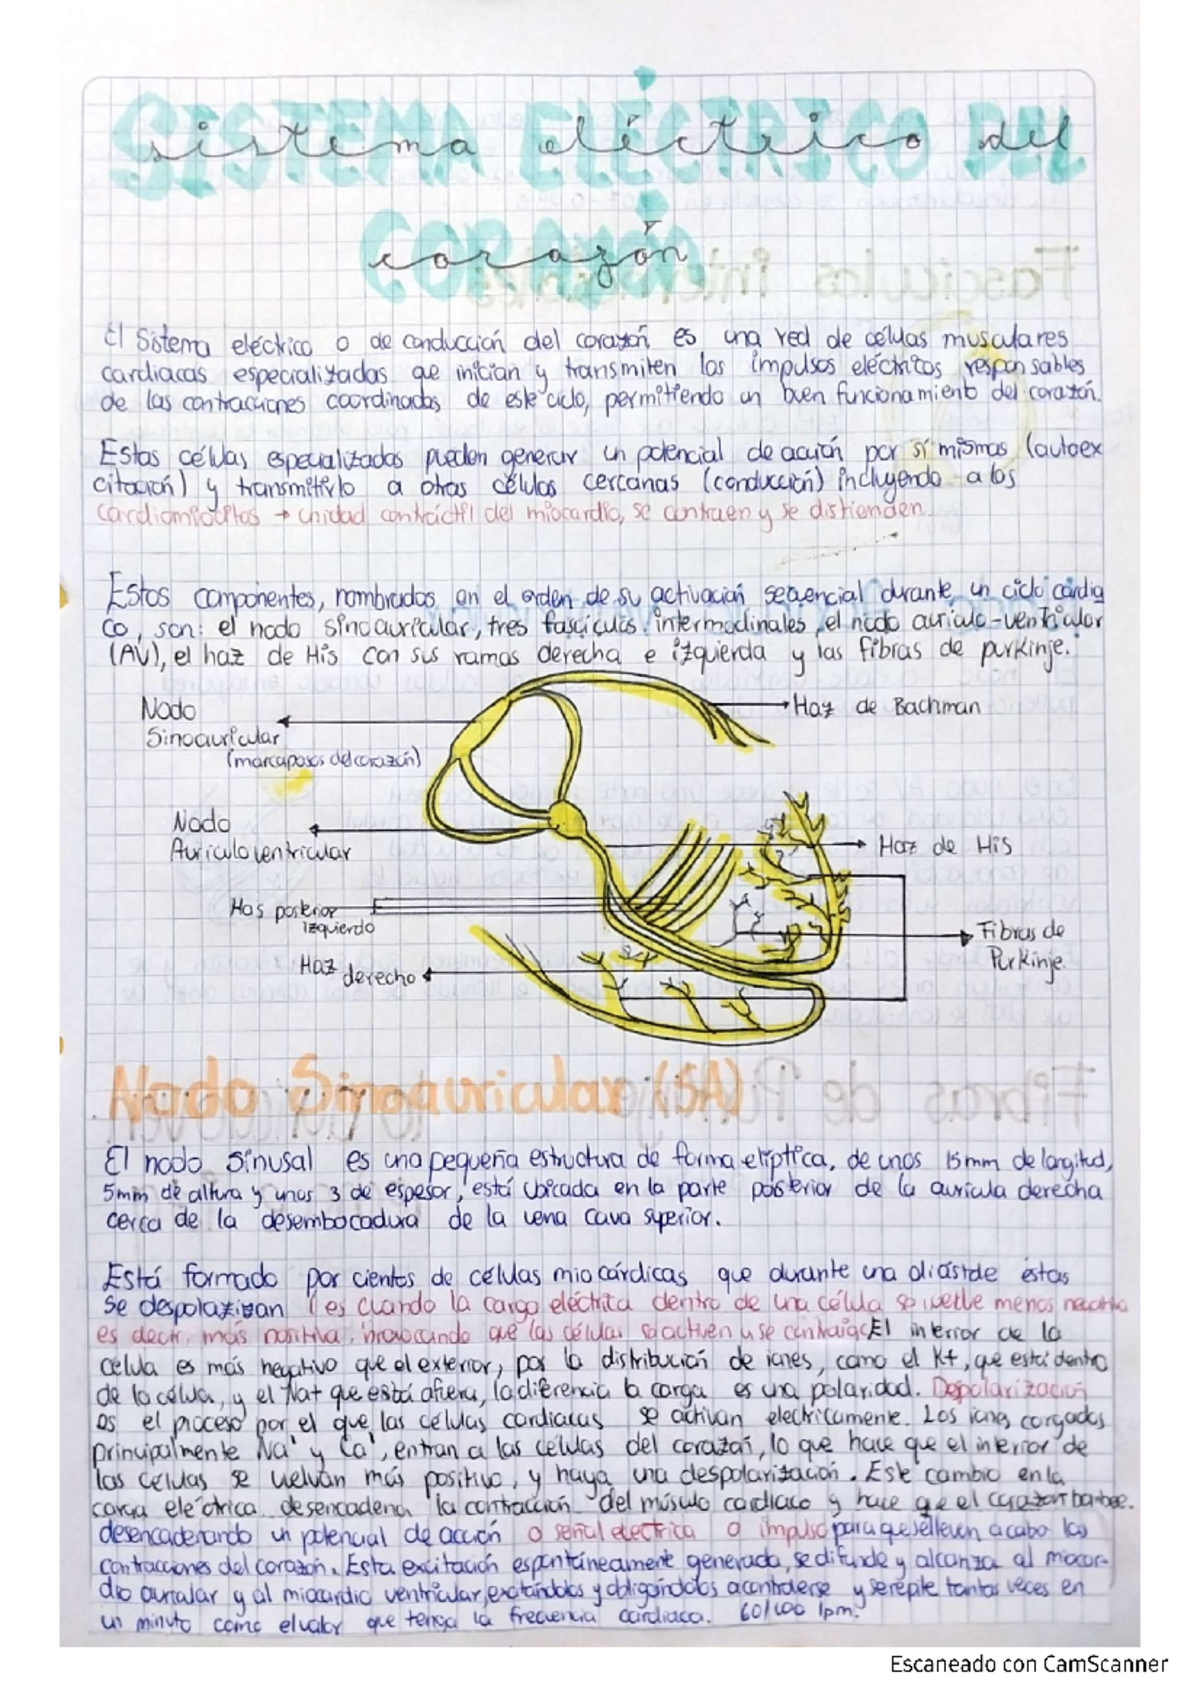 Sistema eléctrico del
corazón
El Sistema eléctrico o de conducción del corazón es una red de células musculares
cardiacas especializadas que inician y transmiten los impulsos eléctricos responsables
de las contracciones coordinadas de este ciclo, permitiendo un buen funcionamiento del corazón.
Estas células especializadas pueden generar un potencial de acción por sí mismas (autoex
citación) y transmitirlo a otras células cercanas (conducción) incluyendo a los
cardiomiocitos → unidad contráctil del miocardio, se contraen y se distienden.
Estos componentes, nombrados en el orden de su activación secuencial durante un ciclo cardia
co, son: el nodo sinoauricular, tres fascículos intermodinales, el nodo auriculo-ventricular
(AV), el haz de His con sus ramas derecha e izquierda y las fibras de purkinje.
Nodo
Sinoauricular
(marcapasos del corazón)
Haz de Bachman
Nodo
Auriculoventricular
Haz de His
Has posterior
Izquierdo
Fibras de
Purkinje.
Haz derecho
Nodo Sinoauricular (SA)
El nodo sinusal es una pequeña estructura de forma elíptica, de unos 15mm de longitud,
5mm de altura y unos 3 de espesor, está ubicada en la parte posterior de la auricula derecha
cerca de la desembocadura de la vena cava superior.
Está formado por cientos de células miocárdicas que durante una diástole éstas
se despolarizan (es cuando la carga eléctrica dentro de una célula se vuelve menos negativa
es decir, más positiva, provocando que las células se activen y se contraigan El interior de la
célula es más negativo que el exterior, por la distribución de iones, como el K+, que está dentro
de la célula, y el Na+ que está afuera, la diferencia la carga es una polaridad. Despolarización
es el proceso por el que las células cardiacas se activan electricamente. Los iones cargados
principalmente Na+ y Ca+, entran a las células del corazón, lo que hace que el interior de
las células se vuelvan más positivo, y haya una despolarización. Este cambio en la
carga eléctrica desencadena la contracción del músculo cardiaco y hace que el corazón bombee.
desencadenando un potencial de acción o señal electrica o impulso para que se lleven a cabo las
contracciones del corazón. Esta excitación espontáneamente generada, se difunde y alcanza al miocar-
dio auricular y al miocardio ventricular, excitándolos y obligándolos a contraerse y se repite tantas veces en
un minuto como el valor que tenga la frecuencia cardiaca. 60/100 lpm.
Escaneado con CamScanner